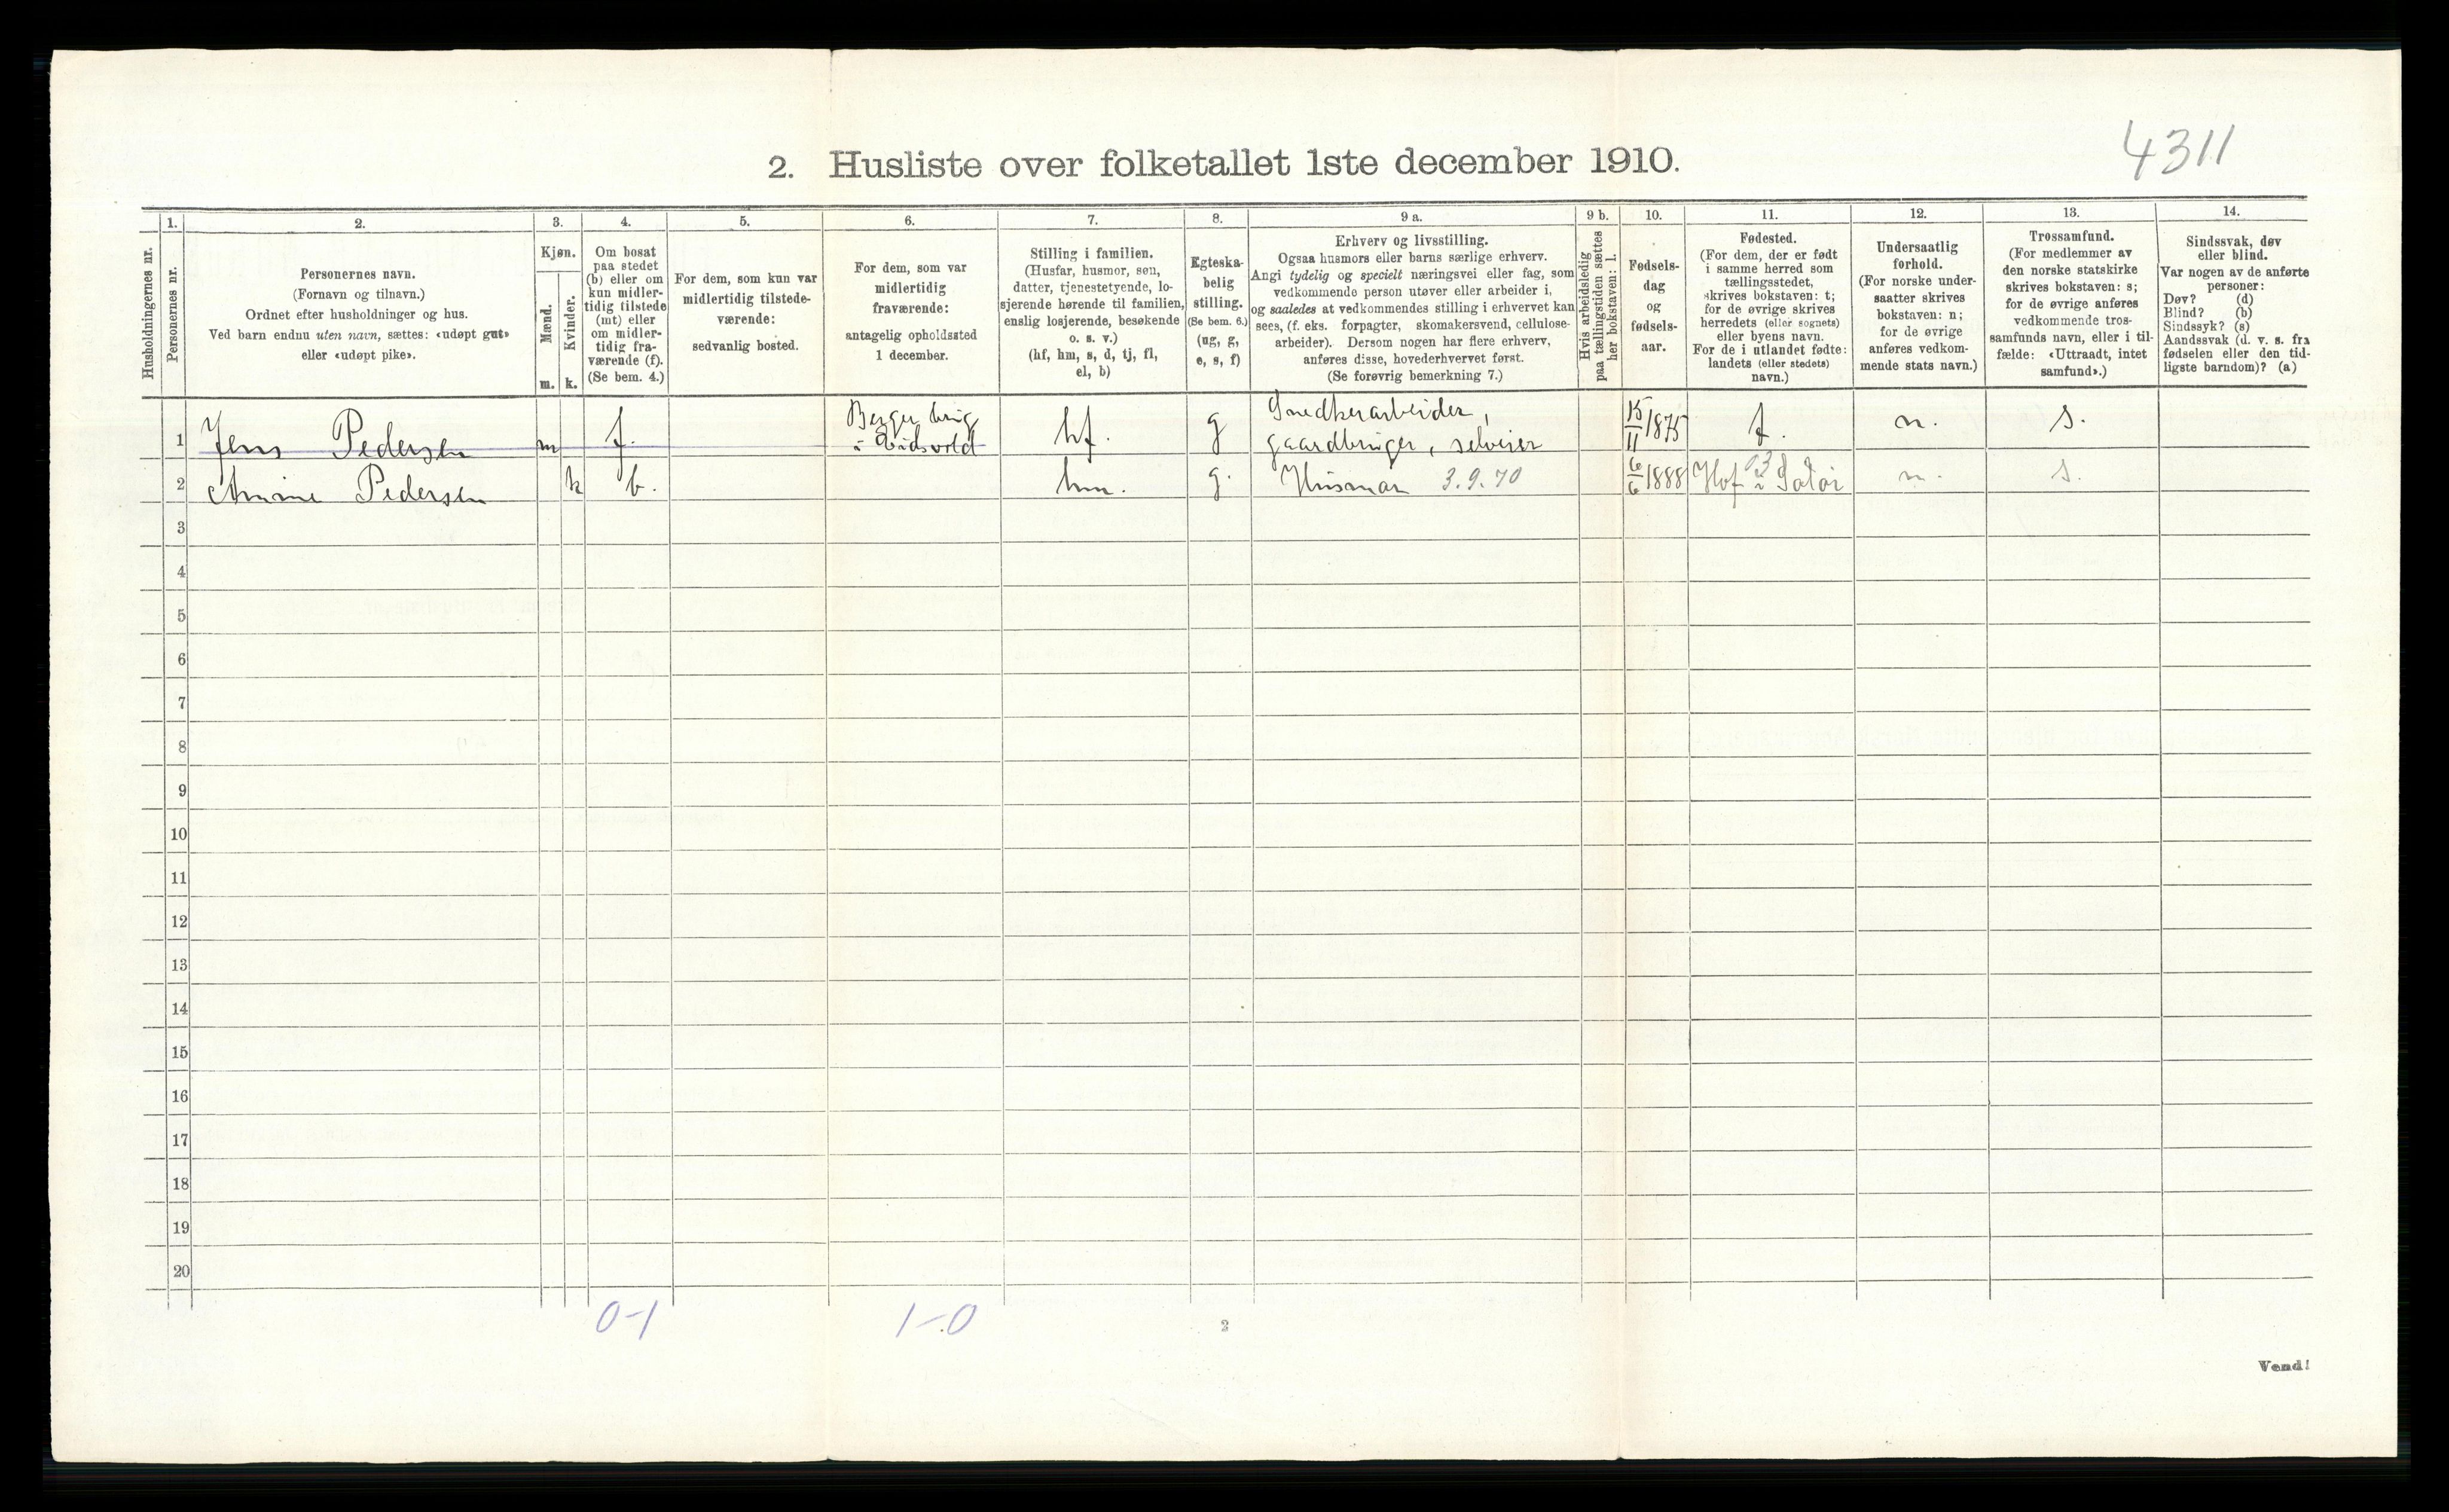 4311
2. Husliste over folketallet 1ste december 1910.
Husholdningernes nr.
1.
Personernes nr.
2.
Personernes navn.
(Fornavn og tilnavn.)
Ordnet efter husholdninger og hus.
Ved barn endnu uten navn, sættes: «udøpt gut»
eller «udøpt pike».
3.
Kjøn.
Mænd.
m.
Kvinder.
k.
4.
Om bosat
paa stedet
(b) eller om
kun midler-
tidig tilstede
(mt) eller
om midler-
tidig fra-
værende (f).
(Se bem. 4.)
5.
For dem, som kun var
midlertidig tilstede-
værende:
sedvanlig bosted.
6.
For dem, som var
midlertidig
fraværende:
antagelig opholdssted
1 december.
7.
Stilling i familien.
(Husfar, husmor, søn,
datter, tjenestetyende, lo-
sjerende hørende til familien,
enslig losjerende, besøkende
o. s. v.)
(hf, hm, s, d, tj, fl,
el, b)
8.
Egteska-
belig
stilling.
(Se bem. 6.)
(ug, g,
e, s, f)
9 a.
Erhverv og livsstilling.
Ogsaa husmors eller barns særlige erhverv.
Angi tydelig og specielt næringsvei eller fag, som
vedkommende person utøver eller arbeider i,
og saaledes at vedkommendes stilling i erhvervet kan
sees, (f. eks. forpagter, skomakersvend, cellulose-
arbeider). Dersom nogen har flere erhverv,
anføres disse, hovederhvervet først.
(Se forøvrig bemerkning 7.)
9 b.
Hvis arbeidsledig
paa tællingstiden sættes
her bokstaven: l.
10.
Fødsels-
dag
og
fødsels-
aar.
11.
Fødested.
(For dem, der er født
i samme herred som
tællingsstedet,
skrives bokstaven: t;
for de øvrige skrives
herredets (eller sognets)
eller byens navn.
For de i utlandet fødte:
landets (eller stedets)
navn.)
12.
Undersaatlig
forhold.
(For norske under-
saatter skrives
bokstaven: n;
for de øvrige
anføres vedkom-
mende stats navn.)
13.
Trossamfund.
(For medlemmer av
den norske statskirke
skrives bokstaven: s;
for de øvrige anføres
vedkommende tros-
samfunds navn, eller i til-
fælde: «Uttraadt, intet
samfund».)
14.
Sindssvak, døv
eller blind.
Var nogen av de anførte
personer:
Døv? (d)
Blind? (b)
Sindssyk? (s)
Aandssvak (d. v. s. fra
fødselen eller den tid-
ligste barndom)? (a)
1 Jens Pedersen m f. i Eidsvold hf. g Snedkerarbeider,
gaardbruger, selveier 15/11 1875 t. n. s.
2 Pedersen k b. hm. g. Husmor 3.9.70 6/6 1888 Hof i Solør n. s.
3
4
5
6
7
8
9
10
11
12
13
14
15
16
17
18
19
20
0-1
1-0
2
Vend!